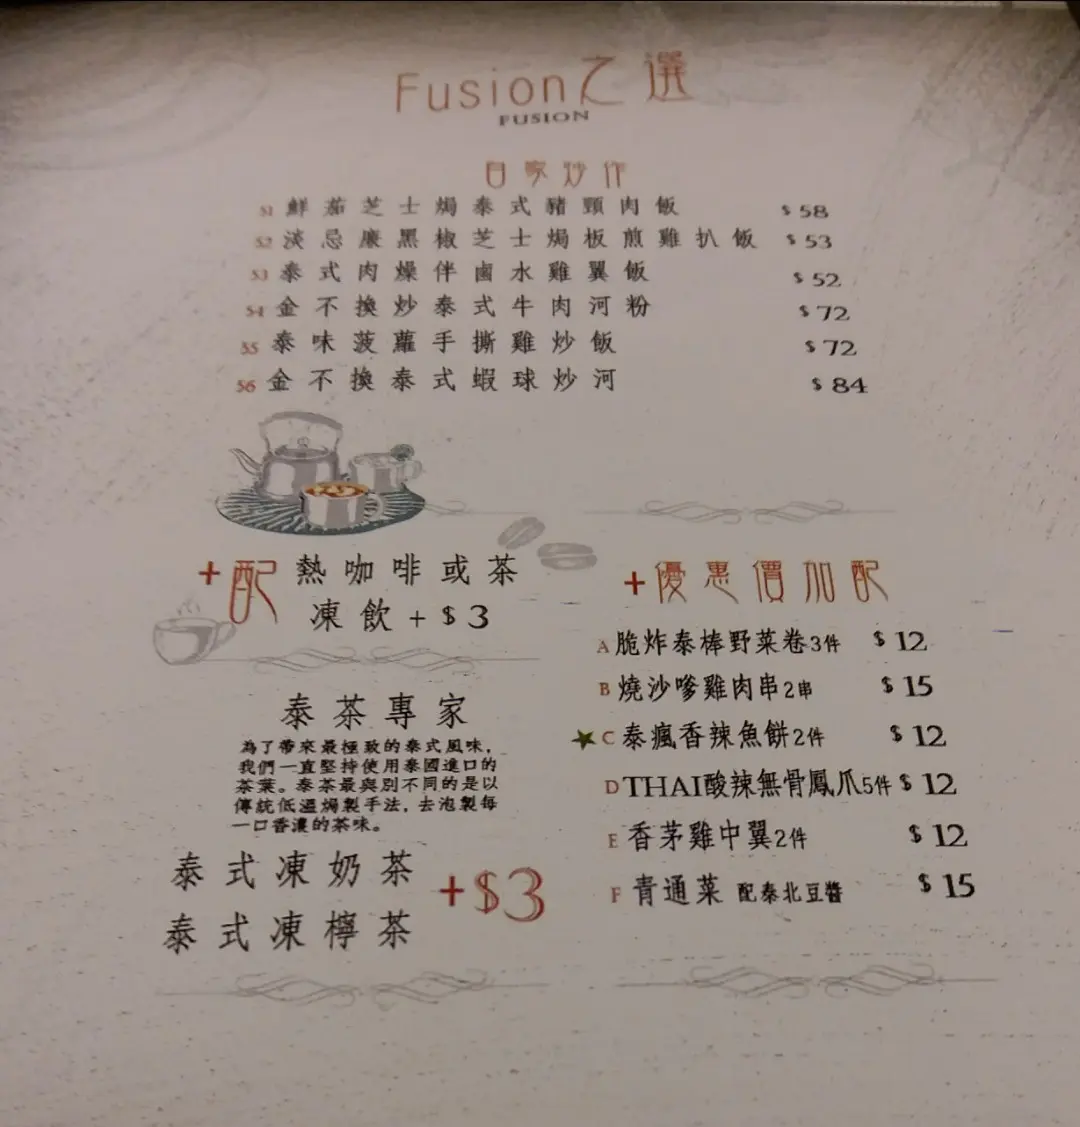 Fusion之選
FUSION
自家炒作
51 鮮茄芝士焗泰式豬頸肉飯 $58
52 淡忌廉黑椒芝士焗板煎雞扒飯 $53
53 泰式肉燥伴鹵水雞翼飯 $52
54 金不換炒泰式牛肉河粉 $72
55 泰味菠蘿手撕雞炒飯 $72
56 金不換泰式蝦球炒河 $84
+配 熱咖啡或茶
凍飲+$3
泰茶專家
為了帶來最極致的泰式風味,
我們一直堅持使用泰國進口的
茶葉。泰茶最與別不同的是以
傳統低溫焗製手法,去泡製每
一口香濃的茶味。
泰式凍奶茶
泰式凍檸茶
+$3
+優惠價加配
A 脆炸泰棒野菜卷3件 $12
B 燒沙嗲雞肉串2串 $15
★C 泰瘋香辣魚餅2件 $12
D THAI酸辣無骨鳳爪5件 $12
E 香茅雞中翼2件 $12
F 青通菜 配泰北豆醬 $15